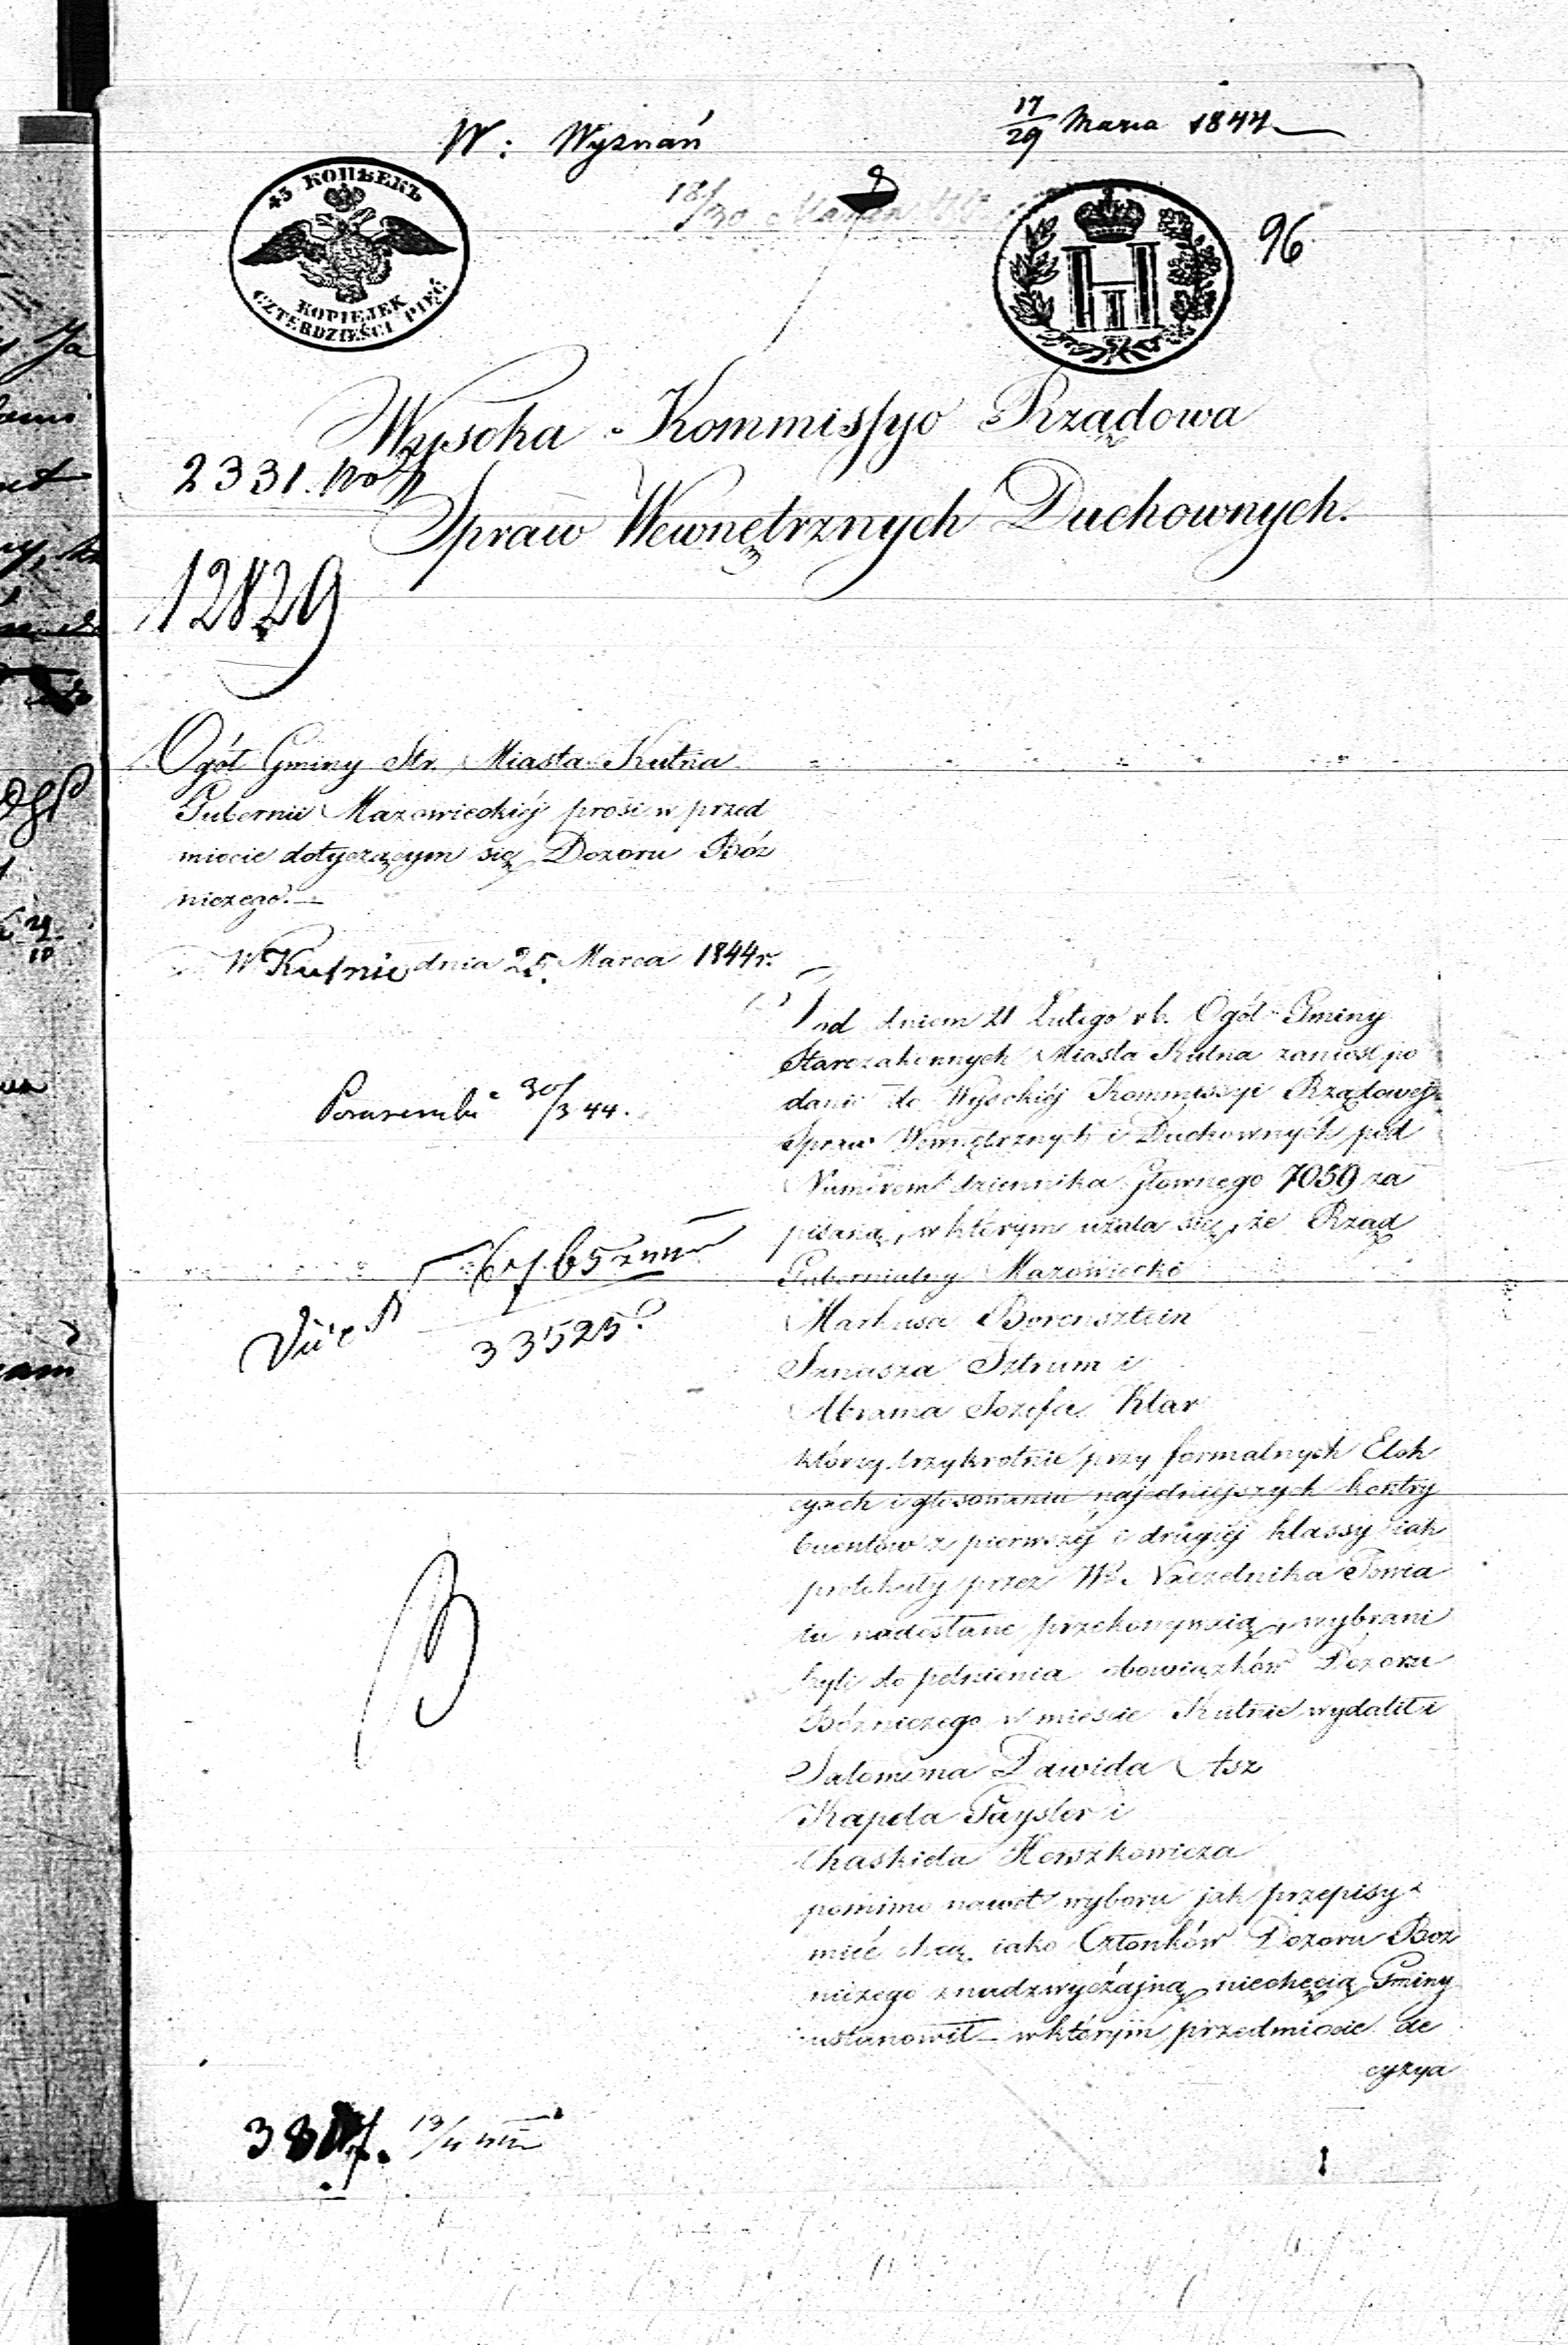 W: Wyznań
17/29 Marca 1844
18/30
45 КОПѢЕКЪ
KOPIEJEK
CZTERDZIEŚCI PIĘĆ
96
Wysoka Kommissyo Rządowa
2331.
Spraw Wewnętrznych Duchownych.
12829
Ogół Gminy Str. Miasta Kutna
Gubernii Mazowieckiéj prosi w przed
miocie dotyczącym się Dozoru Bóż
niczego.—
W Kutnie dnia 25. Marca 1844 r.
Pod dniem 21 Lutego r b. Ogół Gminy
Starozakonnych Miasta Kutna zaniósł po
danie do Wysokiéj Kommissyi Rządowej
Spraw Wewnętrznych i Duchownych pod
Numerem dziennika głownego 7059 za
pisaną, w którym użala się, że Rząd
Gubernialny Mazowiecki
Markusa Borensztein
Sznusza Sztrum i
Abrama Jozefa Klar
którzy trzykrotnie przy formalnych Elek
cyach i głosowaniu najedniejszych kontry
buentów z pierwszéj i drugiéj klassy iak
protokuły przez W. Naczelnika Powia
tu nadesłane przekonywaią, wybrani
byli do pełnienia obowiązków Dozoru
Bózniczego w mieście Kutnie wydalił i
Salomona Dawida Asz
Kapela Paysler i
Chaskiela Henszkowicza
pomimo nawet wyboru jak przepisy
mieć chcą iako Członków Dozoru Boż
niczego z nadzwyczajną niechęcią Gminy
ustanowił — w którym przedmiocie de
cyzya
30/3 44.
33525
387. 13/4